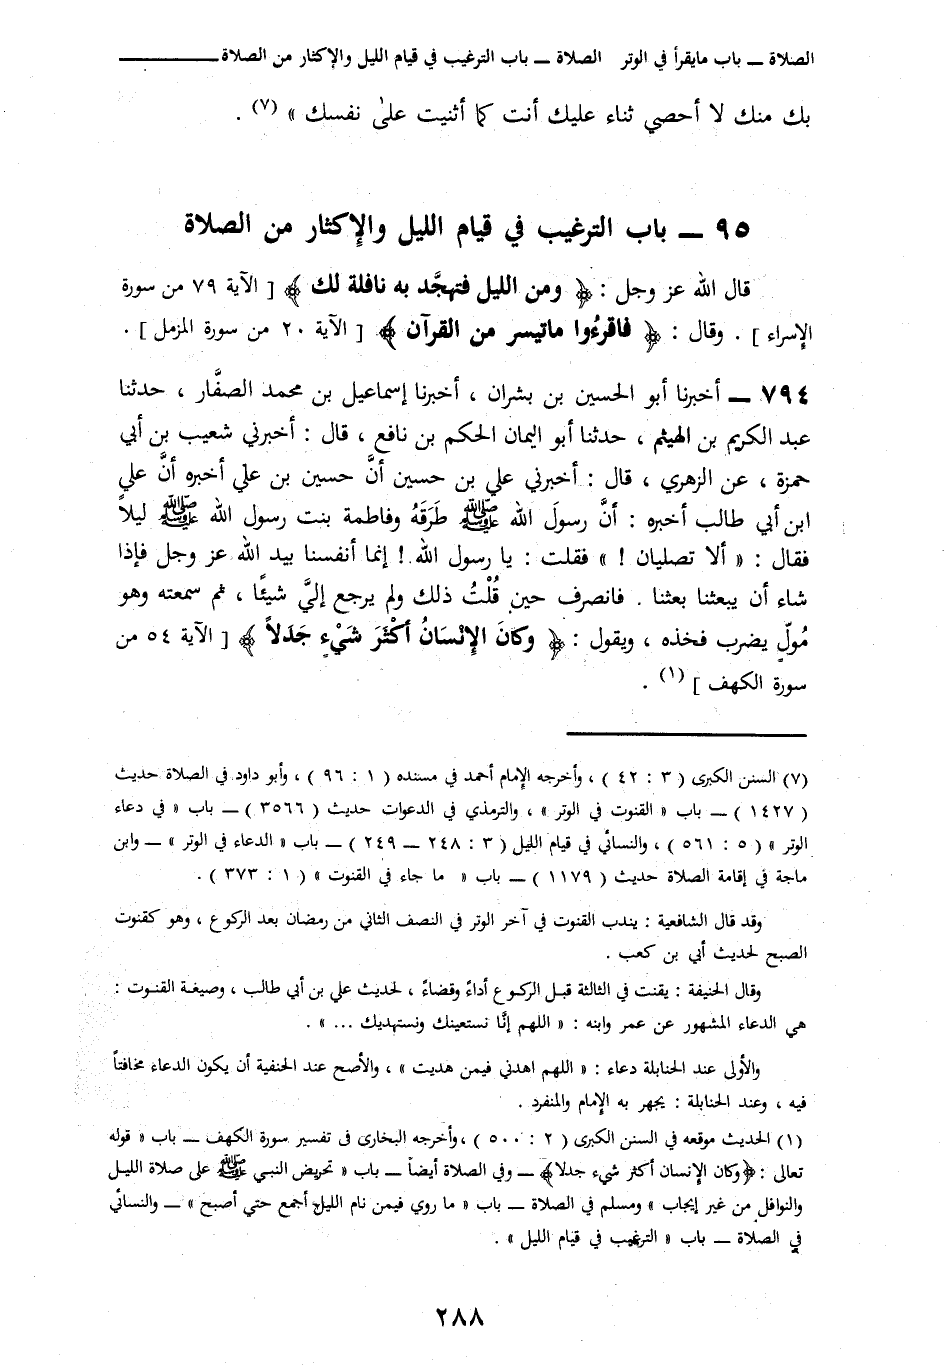 الصلاة ــ باب مايقرأ في الوتر الصلاة ــ باب الترغيب في قيام الليل والإكثار من الصلاة
بك منك لا أحصي ثناء عليك أنت كما أثنيت علىٰ نفسك » (٧) .
٩٥ ــ باب الترغيب في قيام الليل والإكثار من الصلاة
قال الله عز وجل : ﴿ ومن الليل فتهجَّد به نافلة لك ﴾ [ الآية ٧٩ من سورة
الإسراء ] . وقال : ﴿ فاقرءُوا ماتيسر من القرآن ﴾ [ الآية ٢٠ من سورة المزمل ] .
٧٩٤ ــ أخبرنا أبو الحسين بن بشران ، أخبرنا إسماعيل بن محمد الصفَّار ، حدثنا
عبد الكريم بن الهيثم ، حدثنا أبو اليمان الحكم بن نافع ، قال : أخبرني شعيب بن أبي
حمزة ، عن الزهري ، قال : أخبرني علي بن حسين أنَّ حسين بن علي أخبره أنَّ علي
ابن أبي طالب أخبره : أنَّ رسولَ الله ﷺ طَرَقَهُ وفاطمة بنت رسول الله ﷺ ليلاً
فقال : « ألا تصليان ! » فقلت : يا رسول الله ! إنما أنفسنا بيد الله عز وجل فإذا
شاء أن يبعثنا بعثنا . فانصرف حين قُلْتُ ذلك ولم يرجع إليَّ شيئًا ، ثم سمعته وهو
مُولٍّ يضرب فخذه ، ويقول : ﴿ وكانَ الإنْسَانُ أكْثَرَ شَيْءٍ جَدَلاً ﴾ [ الآية ٥٤ من
سورة الكهف ] (١) .
(٧) السنن الكبرى ( ٣ : ٤٢ ) ، وأخرجه الإمام أحمد في مسنده ( ١ : ٩٦ ) ، وأبو داود في الصلاة حديث
( ١٤٢٧ ) ــ باب « القنوت في الوتر » ، والترمذي في الدعوات حديث ( ٣٥٦٦ ) ــ باب « في دعاء
الوتر » ( ٥ : ٥٦١ ) ، والنسائي في قيام الليل ( ٣ : ٢٤٨ ــ ٢٤٩ ) ــ باب « الدعاء في الوتر » ــ وابن
ماجة في إقامة الصلاة حديث ( ١١٧٩ ) ــ باب « ما جاء في القنوت » ( ١ : ٣٧٣ ) .
وقد قال الشافعية : يندب القنوت في آخر الوتر في النصف الثاني من رمضان بعد الركوع ، وهو كقنوت
الصبح لحديث أبي بن كعب .
وقال الحنيفة : يقنت في الثالثة قبل الركوع أداءً وقضاءً ، لحديث علي بن أبي طالب ، وصيغة القنوت :
هي الدعاء المشهور عن عمر وابنه : « اللهم إنَّا نستعينك ونستهديك ... » .
والأولى عند الحنابلة دعاء : « اللهم اهدني فيمن هديت » ، والأصح عند الحنفية أن يكون الدعاء مخافتاً
فيه ، وعند الحنابلة : يجهر به الإمام والمنفرد .
(١) الحديث موقعه في السنن الكبرى ( ٢ : ٥٠٠ ) ، وأخرجه البخارى فى تفسير سورة الكهف ــ باب « قوله
تعالى : ﴿وكان الإنسان أكثر شيء جدلا﴾ ــ وفي الصلاة أيضاً ــ باب « تحريض النبي ﷺ على صلاة الليل
والنوافل من غير إيجاب » ومسلم في الصلاة ــ باب « ما روي فيمن نام الليل أجمع حتي أصبح » ــ والنسائي
في الصلاة ــ باب « الترغيب في قيام الليل » .
٢٨٨